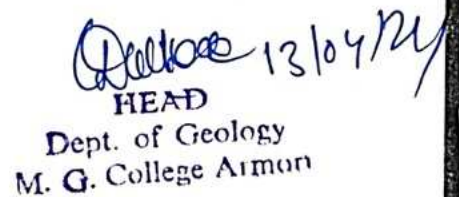 13/04/24
HEAD
Dept. of Geology
M. G. College Armori